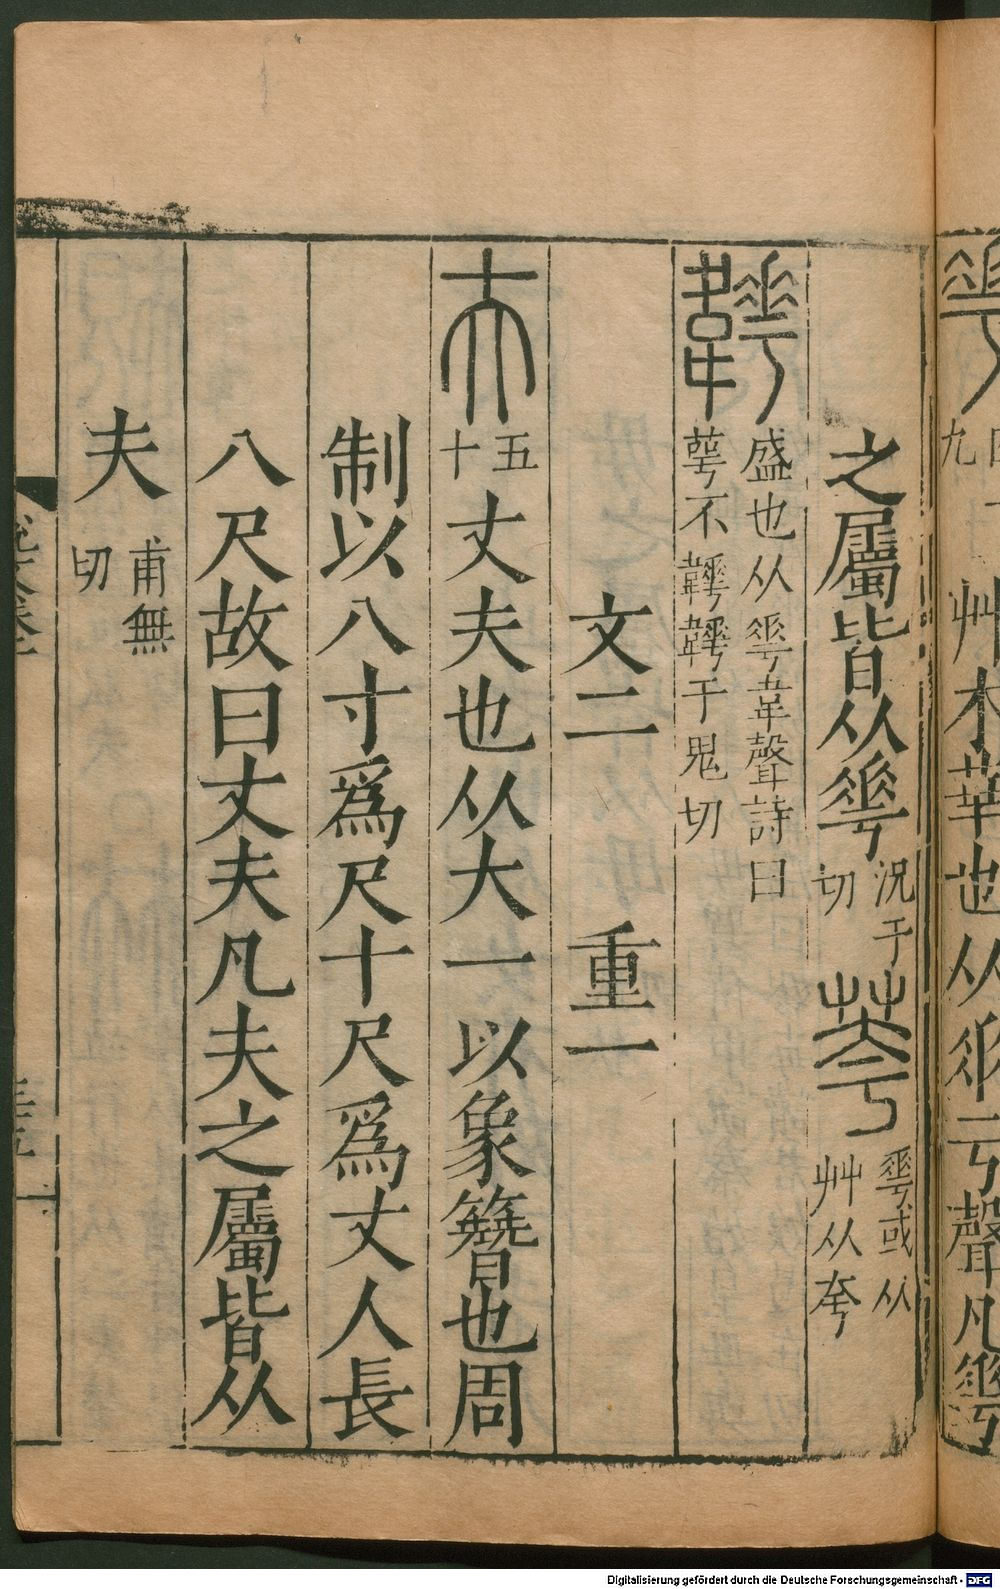 𠌶 九 艸木華也从𠂹亏聲凡𠌶
之屬皆从𠌶 況于切 荂 𠌶或从艸从夸
韡 盛也从𠌶韋聲詩曰萼不韡韡于鬼切
文二 重一
夫 五十 丈夫也从大一以象簪也周
制以八寸爲尺十尺爲丈人長
八尺故曰丈夫凡夫之屬皆从
夫 甫無切
Digitalisierung gefördert durch die Deutsche Forschungsgemeinschaft - DFG